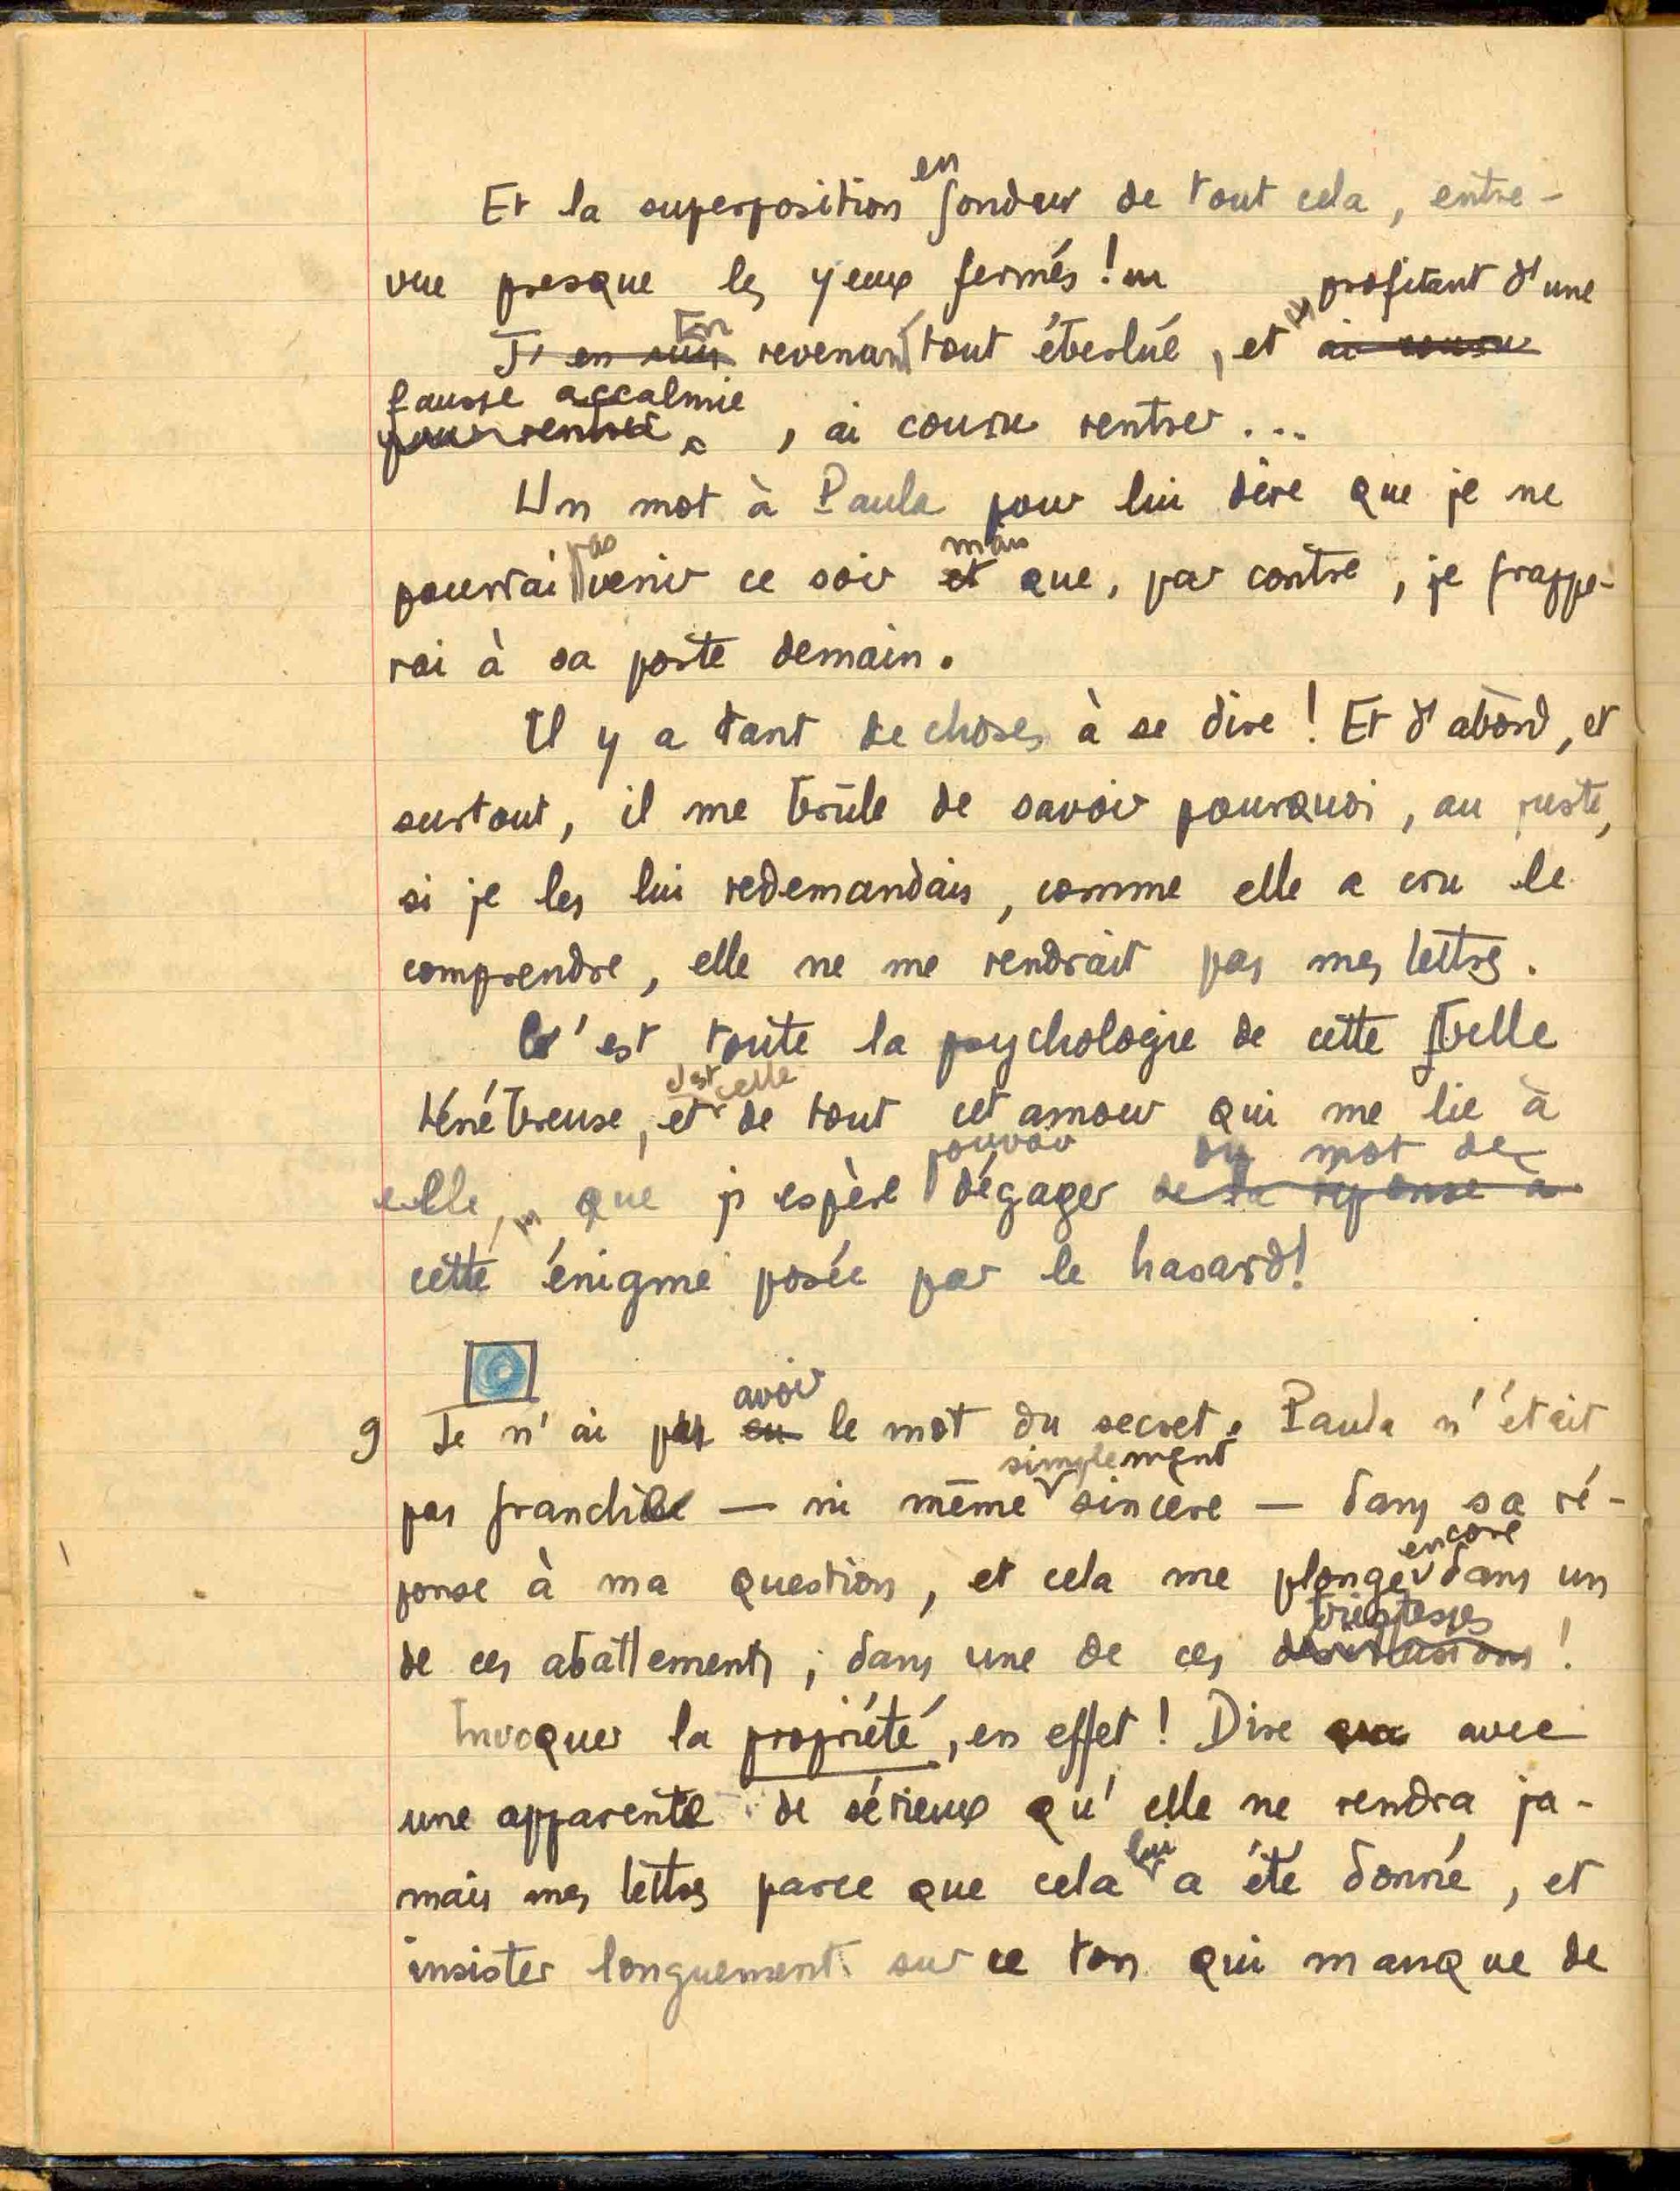 en
Et la superposition fondue de tout cela, entre-
vue presque les yeux fermés !
profitant d'une
En
J'en suis revenant tout éberlué, et ai couru
fausse accalmie
pour rentrer, ai couru rentrer...
Un mot à Paula pour lui dire que je ne
pas mais
pourrai venir ce soir et que, par contre, je frappe-
rai à sa porte demain.
Il y a tant de choses à se dire ! Et d'abord, et
surtout, il me brûle de savoir pourquoi, au juste,
si je les lui redemandais, comme elle a cru le
comprendre, elle ne me rendrait pas mes lettres.
C'est toute la psychologie de cette belle
c'est celle
ténébreuse, et de tout cet amour qui me lie à
pouvoir du mot de
elle, que j'espère dégager de la réponse à
cette énigme posée par le hasard!
avoir
9 Je n'ai pas eu le mot du secret. Paula n'était
simplement
pas franche — ni même sincère — dans sa ré-
encore
ponse à ma question, et cela me plonge dans un
tristesses
de ces abattements, dans une de ces désillusions !
Invoquer la propriété, en effet ! Dire avec
une apparente de sérieux qu'elle ne rendra ja-
lui
mais mes lettres parce que cela a été donné, et
insister longuement sur ce ton qui manque de